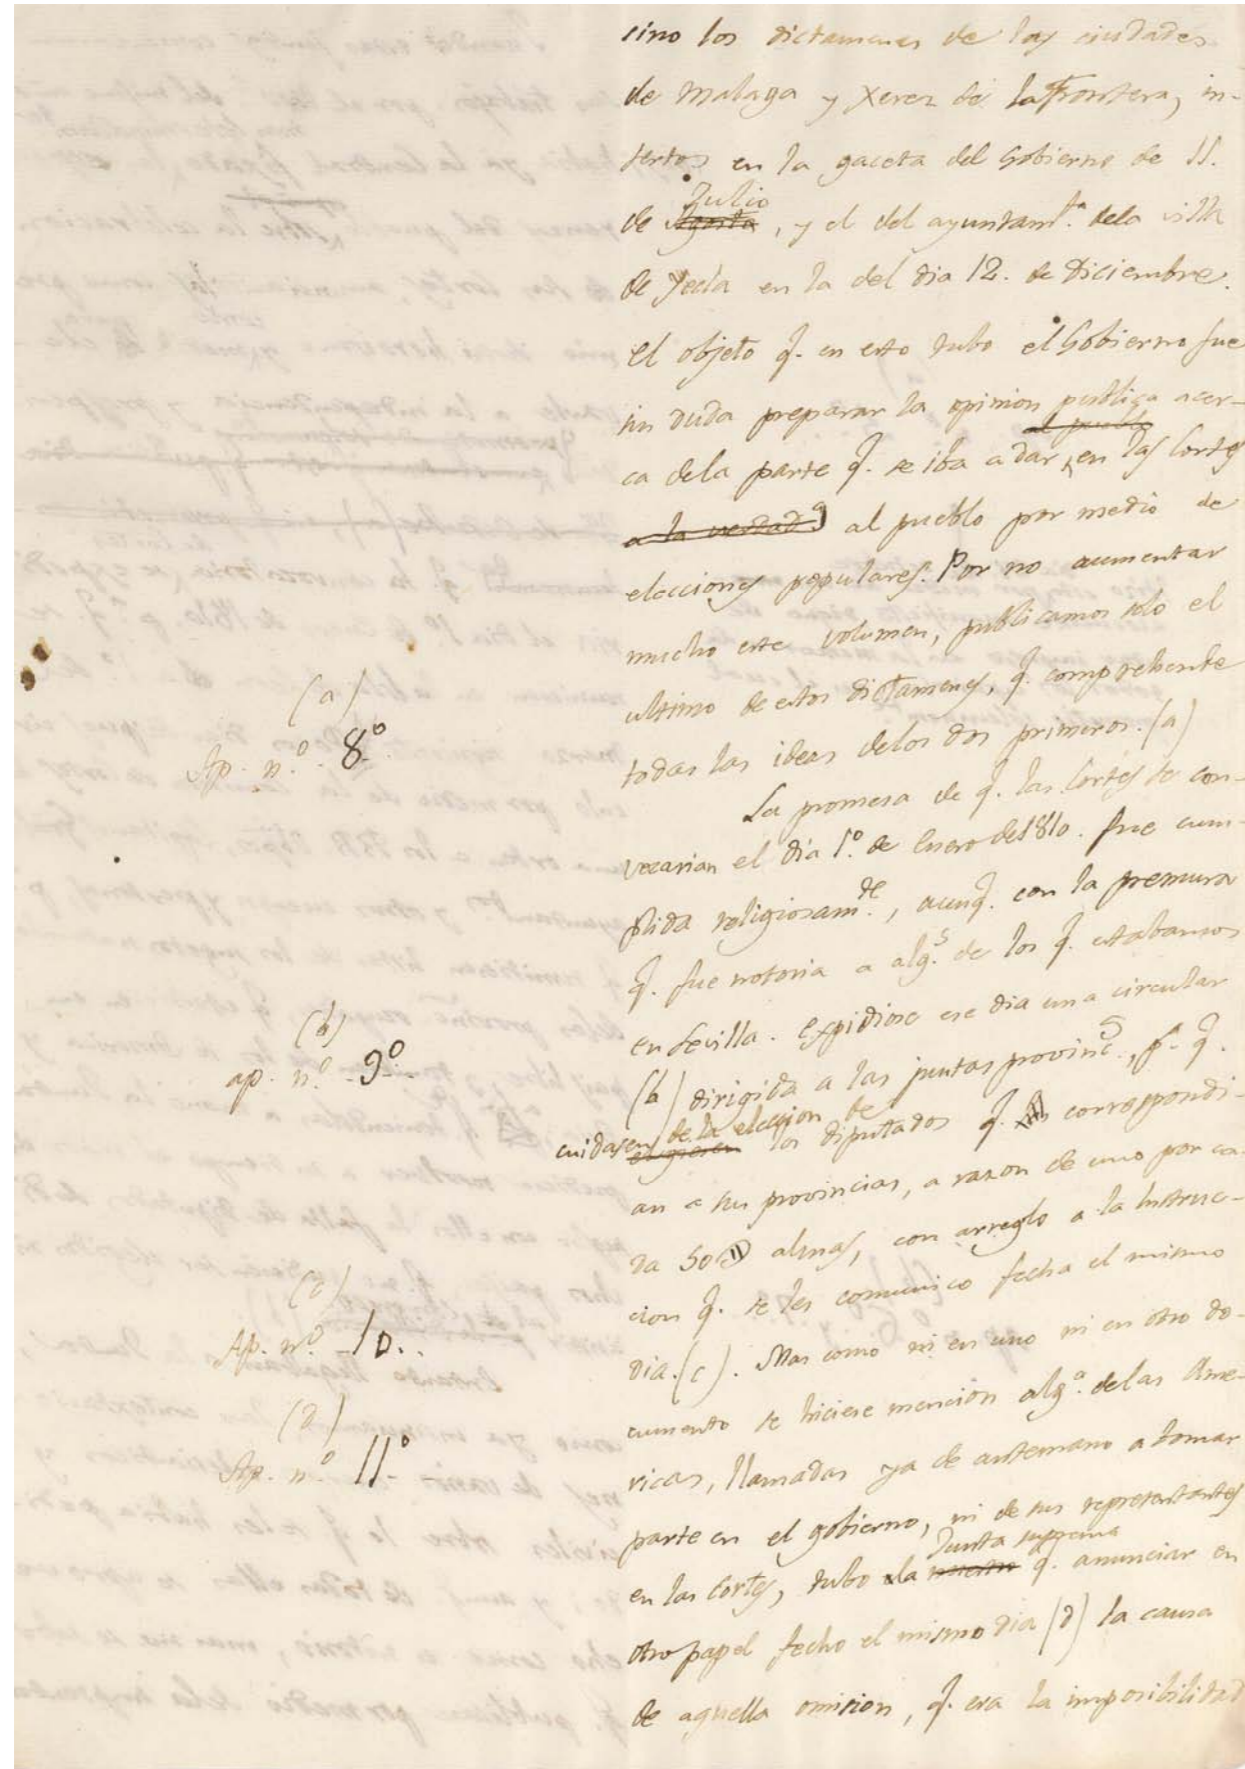 sino los dictamenes de las ciudades
de Malaga y Xerez de la Frontera, in-
sertos en la gaceta del Gobierno de 11.
Julio
de Agosto, y el del ayuntamt.º dela villa
de Yecla en la del dia 12. de Diciembre.
El objeto q. en esto tubo el Gobierno fue
sin duda preparar la opinion publica acer-
al pueblo
ca dela parte q. se iba a dar en las Cortes
a la verdad al pueblo por medio de
elecciones populares. Por no aumentar
mucho este volumen, publicamos solo el
ultimo de estos dictamenes, q. comprehende
(a)
Ap. n.º 8º
todas las ideas delos dos primeros. (a)
La promesa de q. las Cortes se con-
vocarian el dia 1.º de Enero del 810. fue cum-
plida religiosam.te, aunq. con la premura
q. fue notoria a alg.s de los q. estabamos
en Sevilla. Expidiose ese dia una circular
(b)
ap. n.º 9º
(b) dirigida a las juntas provinc.s, p.ª q.
cuidasen de la eleccion de
eligiesen los diputados q. correspondi-
an a sus provincias, a razon de uno por ca-
da 50 almas, con arreglo a la Instruc-
cion q. se les comunico fecha el mismo
(c)
Ap. n.º 10.
dia. (c). Mas como ni en uno ni en otro do-
cumento se hiciese mencion alg.ª delas Ame-
(d)
Ap. n.º 11º
ricas, llamadas ya de antemano a tomar
parte en el gobierno, ni de sus representantes
Junta suprema
en las Cortes, tubo la q. anunciar en
otro papel fecho el mismo dia (d) la causa
de aquella omision, q. era la imposibilidad